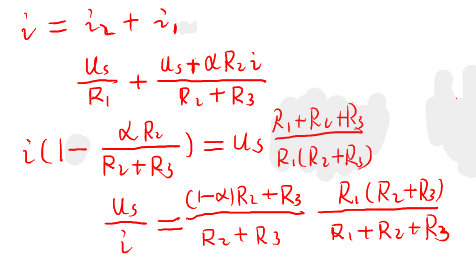 i = i₂ + i₁
u_s/R₁ + (u_s + αR₂i)/(R₂ + R₃)
i(1 - αR₂/(R₂ + R₃)) = u_s (R₁ + R₂ + R₃)/(R₁(R₂ + R₃))
u_s/i = ((1-α)R₂ + R₃)/(R₂ + R₃) R₁(R₂ + R₃)/(R₁ + R₂ + R₃)